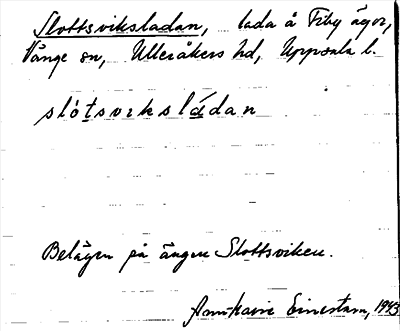 Slottsviksladan, lada å Fiby ägor,
Vänge sn, Ulleråkers hd, Uppsala l.
slòtsvıkslá̀dan
Belägen på ängen Slottsviken.
Einestam, 1943